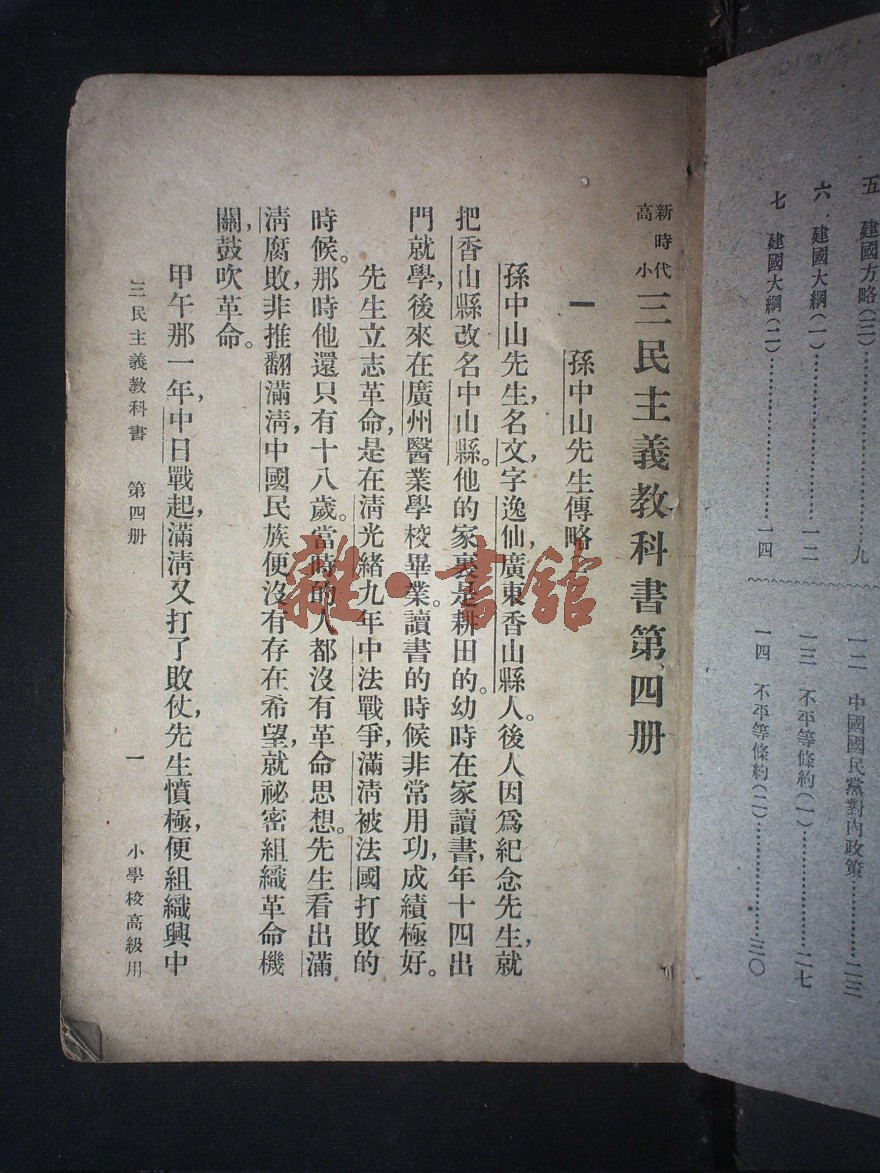 五 建國方略(三)……九
六 建國大綱(一)……一二
七 建國大綱(二)……一四
一二 中國國民黨對內政策……二三
一三 不平等條約(一)……二七
一四 不平等條約(二)……三〇
新時代高小 三民主義教科書第四册
一 孫中山先生傳略一
孫中山先生,名文,字逸仙,廣東香山縣人。後人因爲紀念先生,就
把香山縣改名中山縣。他的家裏是耕田的。幼時在家讀書,年十四出
門就學,後來在廣州醫業學校畢業。讀書的時候非常用功,成績極好。
先生立志革命,是在清光緒九年中法戰爭,滿清被法國打敗的
時候。那時他還只有十八歲。當時的人都沒有革命思想。先生看出滿
清腐敗,非推翻滿清,中國民族便沒有存在希望,就祕密組織革命機
關,鼓吹革命。
甲午那一年,中日戰起,滿清又打了敗仗,先生憤極,便組織興中
三民主義教科書 第四册 一 小學校高級用
雜·書館